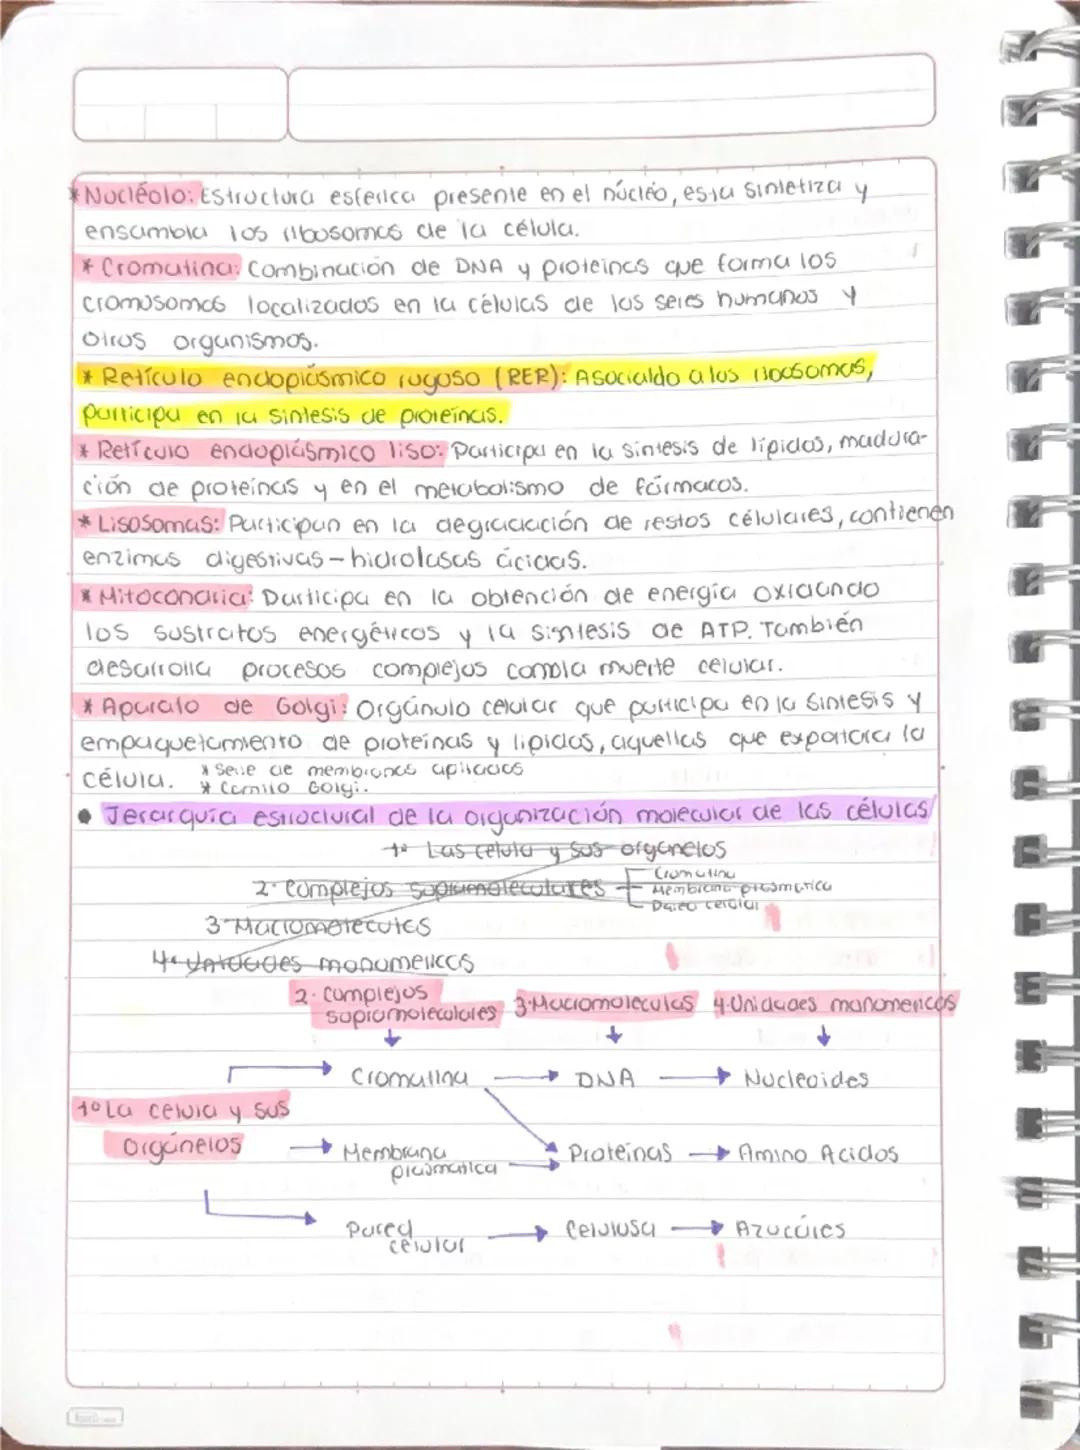 * Nucléolo: Estructura esferica presente en el núcleo, esta sintetiza y
ensambla los ribosomas de la célula.
* Cromatina: Combinación de DNA y proteinas que forma los
cromosomas localizados en la células de los seres humanos y
otros organismos.
* Retículo endoplásmico rugoso (RER): Asocialdo a los ribosomas,
participa en la sintesis de proteínas.
* Retículo endoplásmico liso: Participa en la sintesis de lípidos, madura-
ción de proteínas y en el metabolismo de fármacos.
* Lisosomas: Participan en la degradación de restos célulares, contienen
enzimas digestivas - hidrolasas ácidas.
* Mitocondria: Participa en la obtención de energía oxidando
los sustratos energéticos y la sintesis de ATP. También
desarrolla procesos complejos como la muerte celular.
* Aparato de Golgi: Orgánulo celular que participa en la sintesis y
empaquetamiento de proteínas y lipidos, aquellas que exportara la
célula. * Serie de membranas apiladas
* Camilo Golgi.
• Jerarquía estructural de la organización molecular de las células
1º Las celula y sus organelos
2. Complejos supramoleculares
Cromatina
Membrana plasmatica
Pared celular
3. Macromoleculas
4. Unidades monomericas
2. Complejos
supramoleculares
3. Macromoleculas
4. Unidades monomericas
Cromatina → DNA → Nucleoides
1º La celula y sus
Orgánelos
→ Membrana
plasmatica
→ Proteínas → Amino Acidos
Pared
celular
→ Celulosa → Azucáres